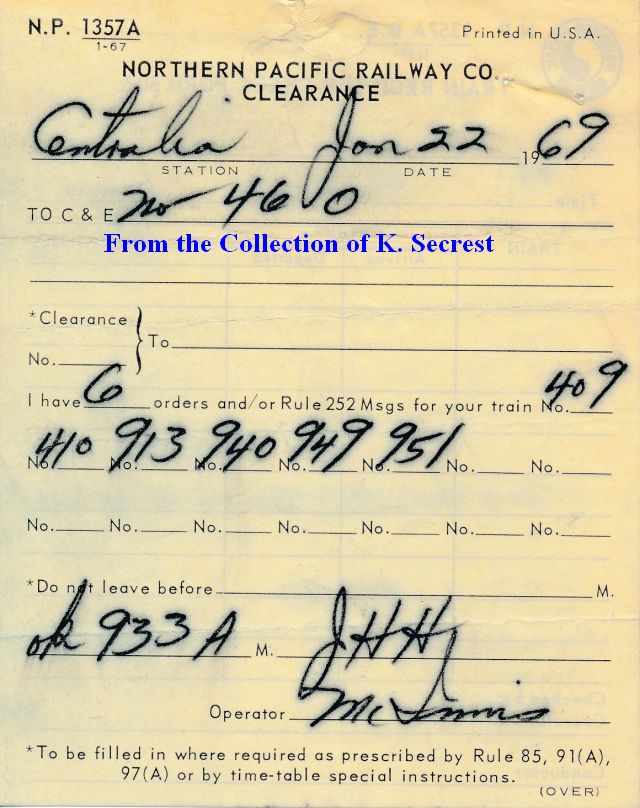 N.P. 1357A Printed in U.S.A.
1-67
NORTHERN PACIFIC RAILWAY CO.
CLEARANCE
Centralia Jan 22 1969
STATION DATE
TO C & E No 460
From the Collection of K. Secrest
*Clearance
No. To
I have 6 orders and/or Rule 252 Msgs for your train No. 409
No. 410 No. 913 No. 940 No. 949 No. 951 No. No.
No. No. No. No. No. No. No.
*Do not leave before M.
ok 933 A M. JHH
Operator McInnis
*To be filled in where required as prescribed by Rule 85, 91(A),
97(A) or by time-table special instructions.
(OVER)